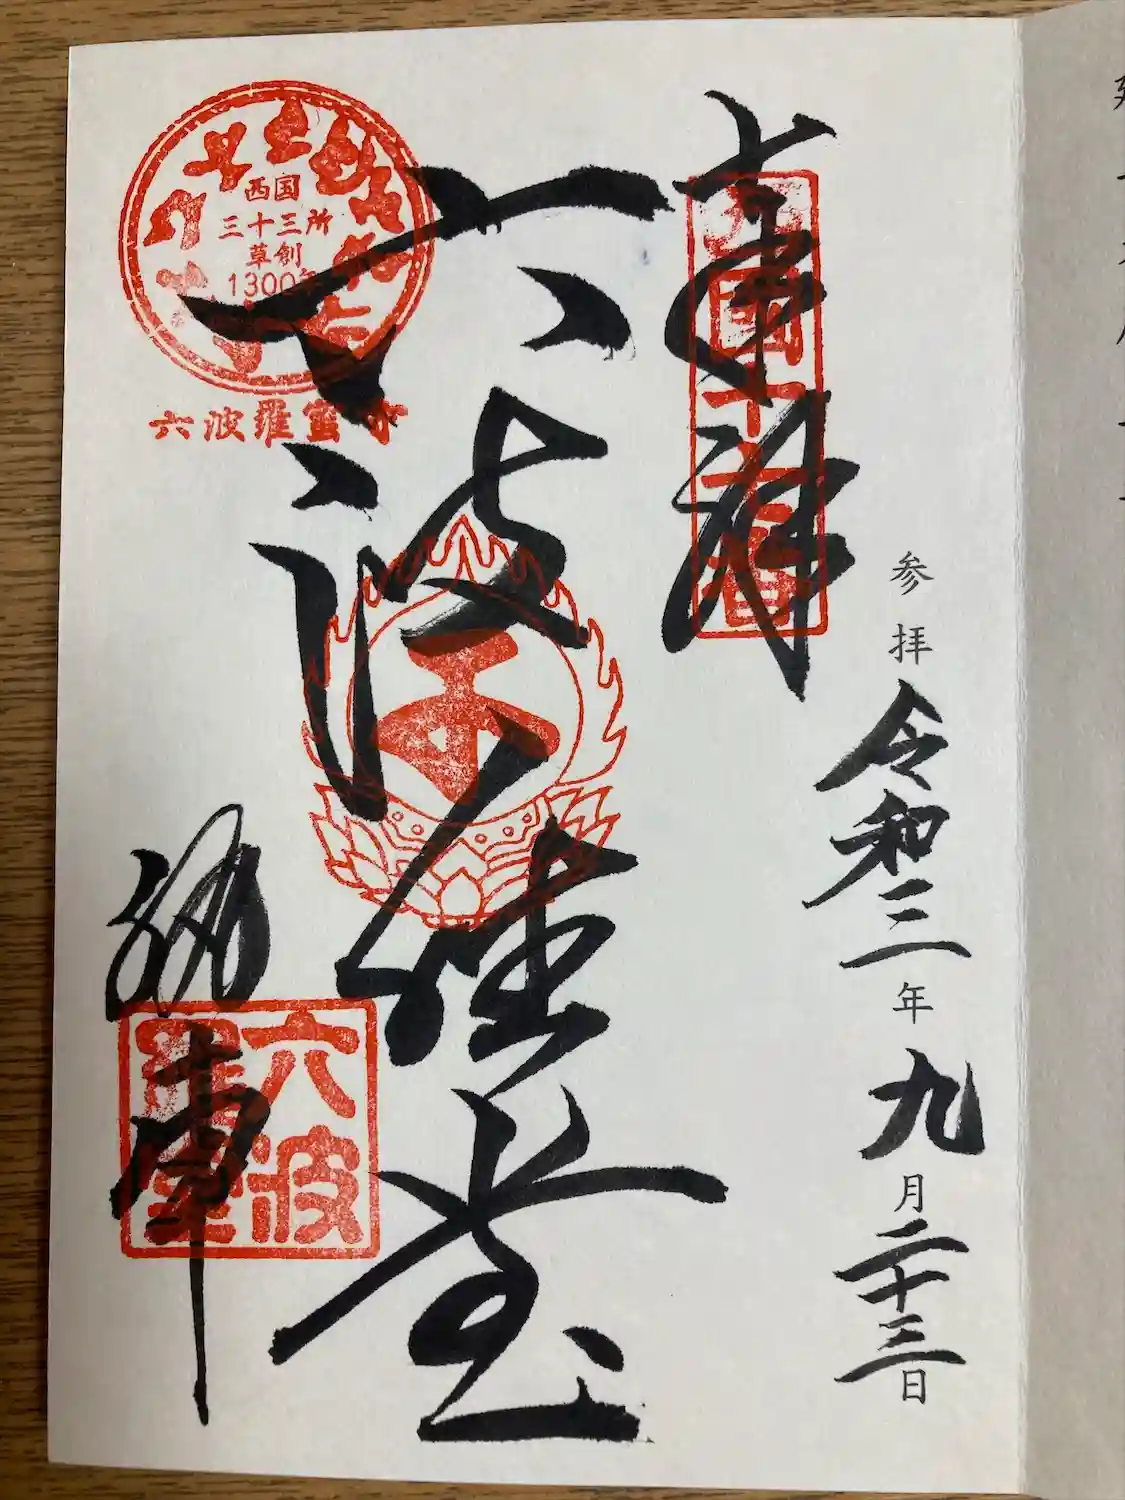 参拝 令和三年九月二十三日
奉拝
西國十七番
六波羅堂
西国
三十三所
草創
1300年
六波羅蜜寺
六波
羅蜜